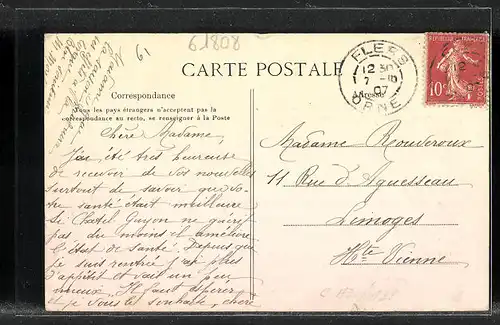 61808
19
CARTE POSTALE
FLERS
12 30
7 - 9
07
ORNE
RÉPUBLIQUE FRANÇAISE
10c
Correspondance
Adresse
Tous les pays étrangers n'acceptent pas la
correspondance au recto, se renseigner à la Poste
Chère Madame,
J'ai été très heureuse
de recevoir de vos nouvelles
surtout de savoir que vo-
tre santé était meilleure
Si Chatel Guyon ne guérit
pas du moins et améliore
l'état de santé. Depuis que
je suis rentrée j'ai plus
d'appétit et vais un peu
mieux. Il faut espérer
et je vous le souhaite, chère
Madame Rouveroux
11 Rue d'Aguesseau
Limoges
Hte Vienne